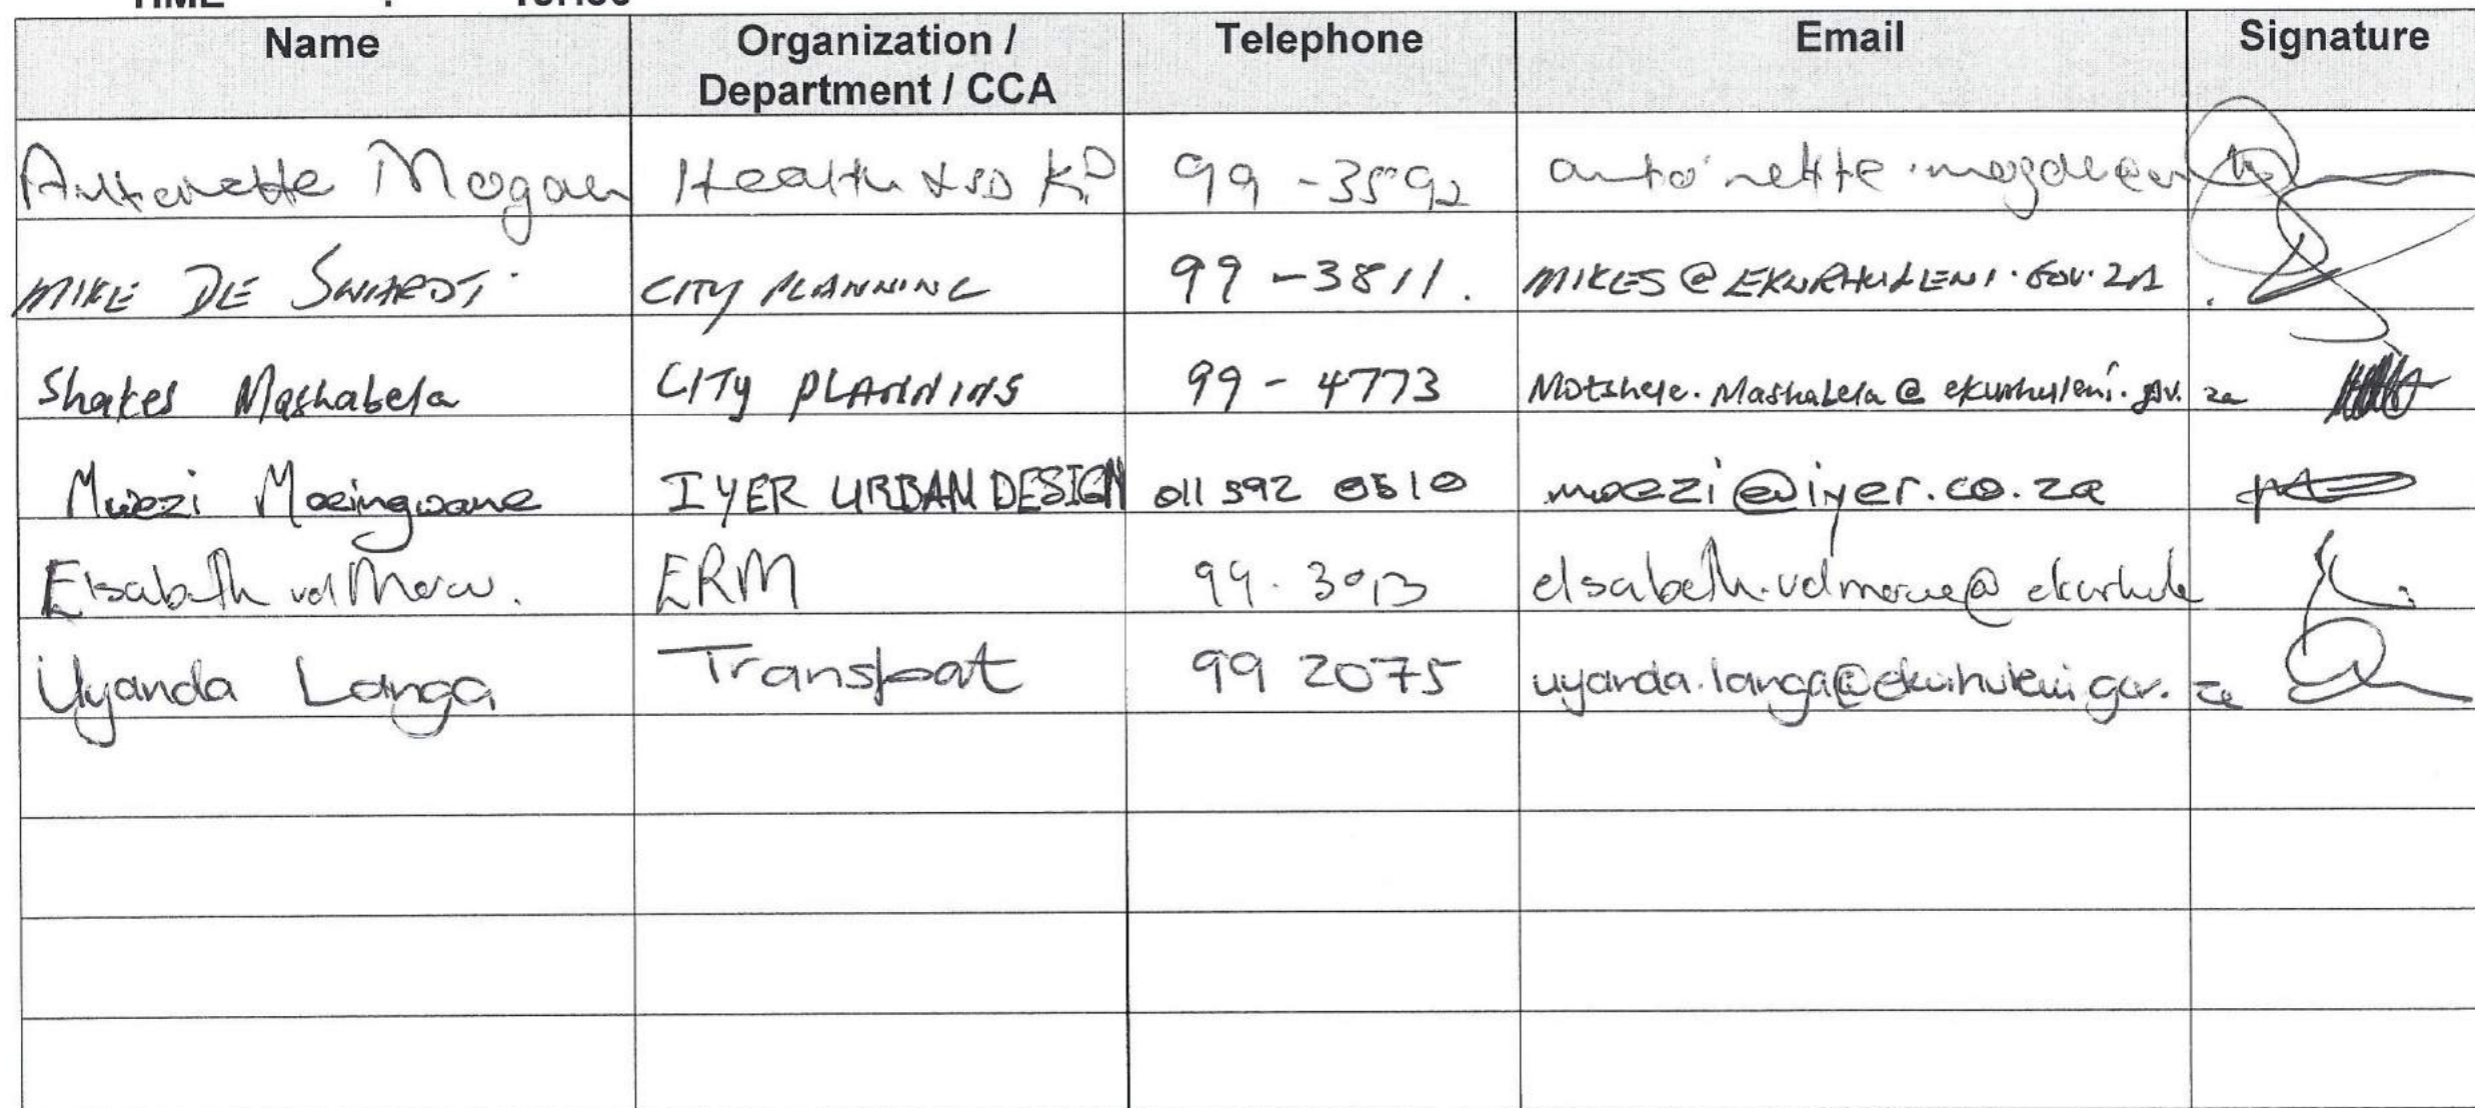 Name Organization / Telephone Email Signature
Department / CCA
Health 99 - 3592
MIKE DE SWARDT CITY PLANNING 99 - 3811. MIKES@EKURHULENI.GOV.ZA
Shakes Mashabela CITY PLANNING 99 - 4773 Motshele.Mashabela@ekurhuleni.gov.za
Mwezi IYER URBAN DESIGN 011 592 0510 mwezi@iyer.co.za
Elsabeth vd Merw. ERM 99.3013 elsabeth.vdmerwe@ekurhule
Uyanda Langa Transport 99 2075 uyanda.langa@ekurhuleni.gov.za